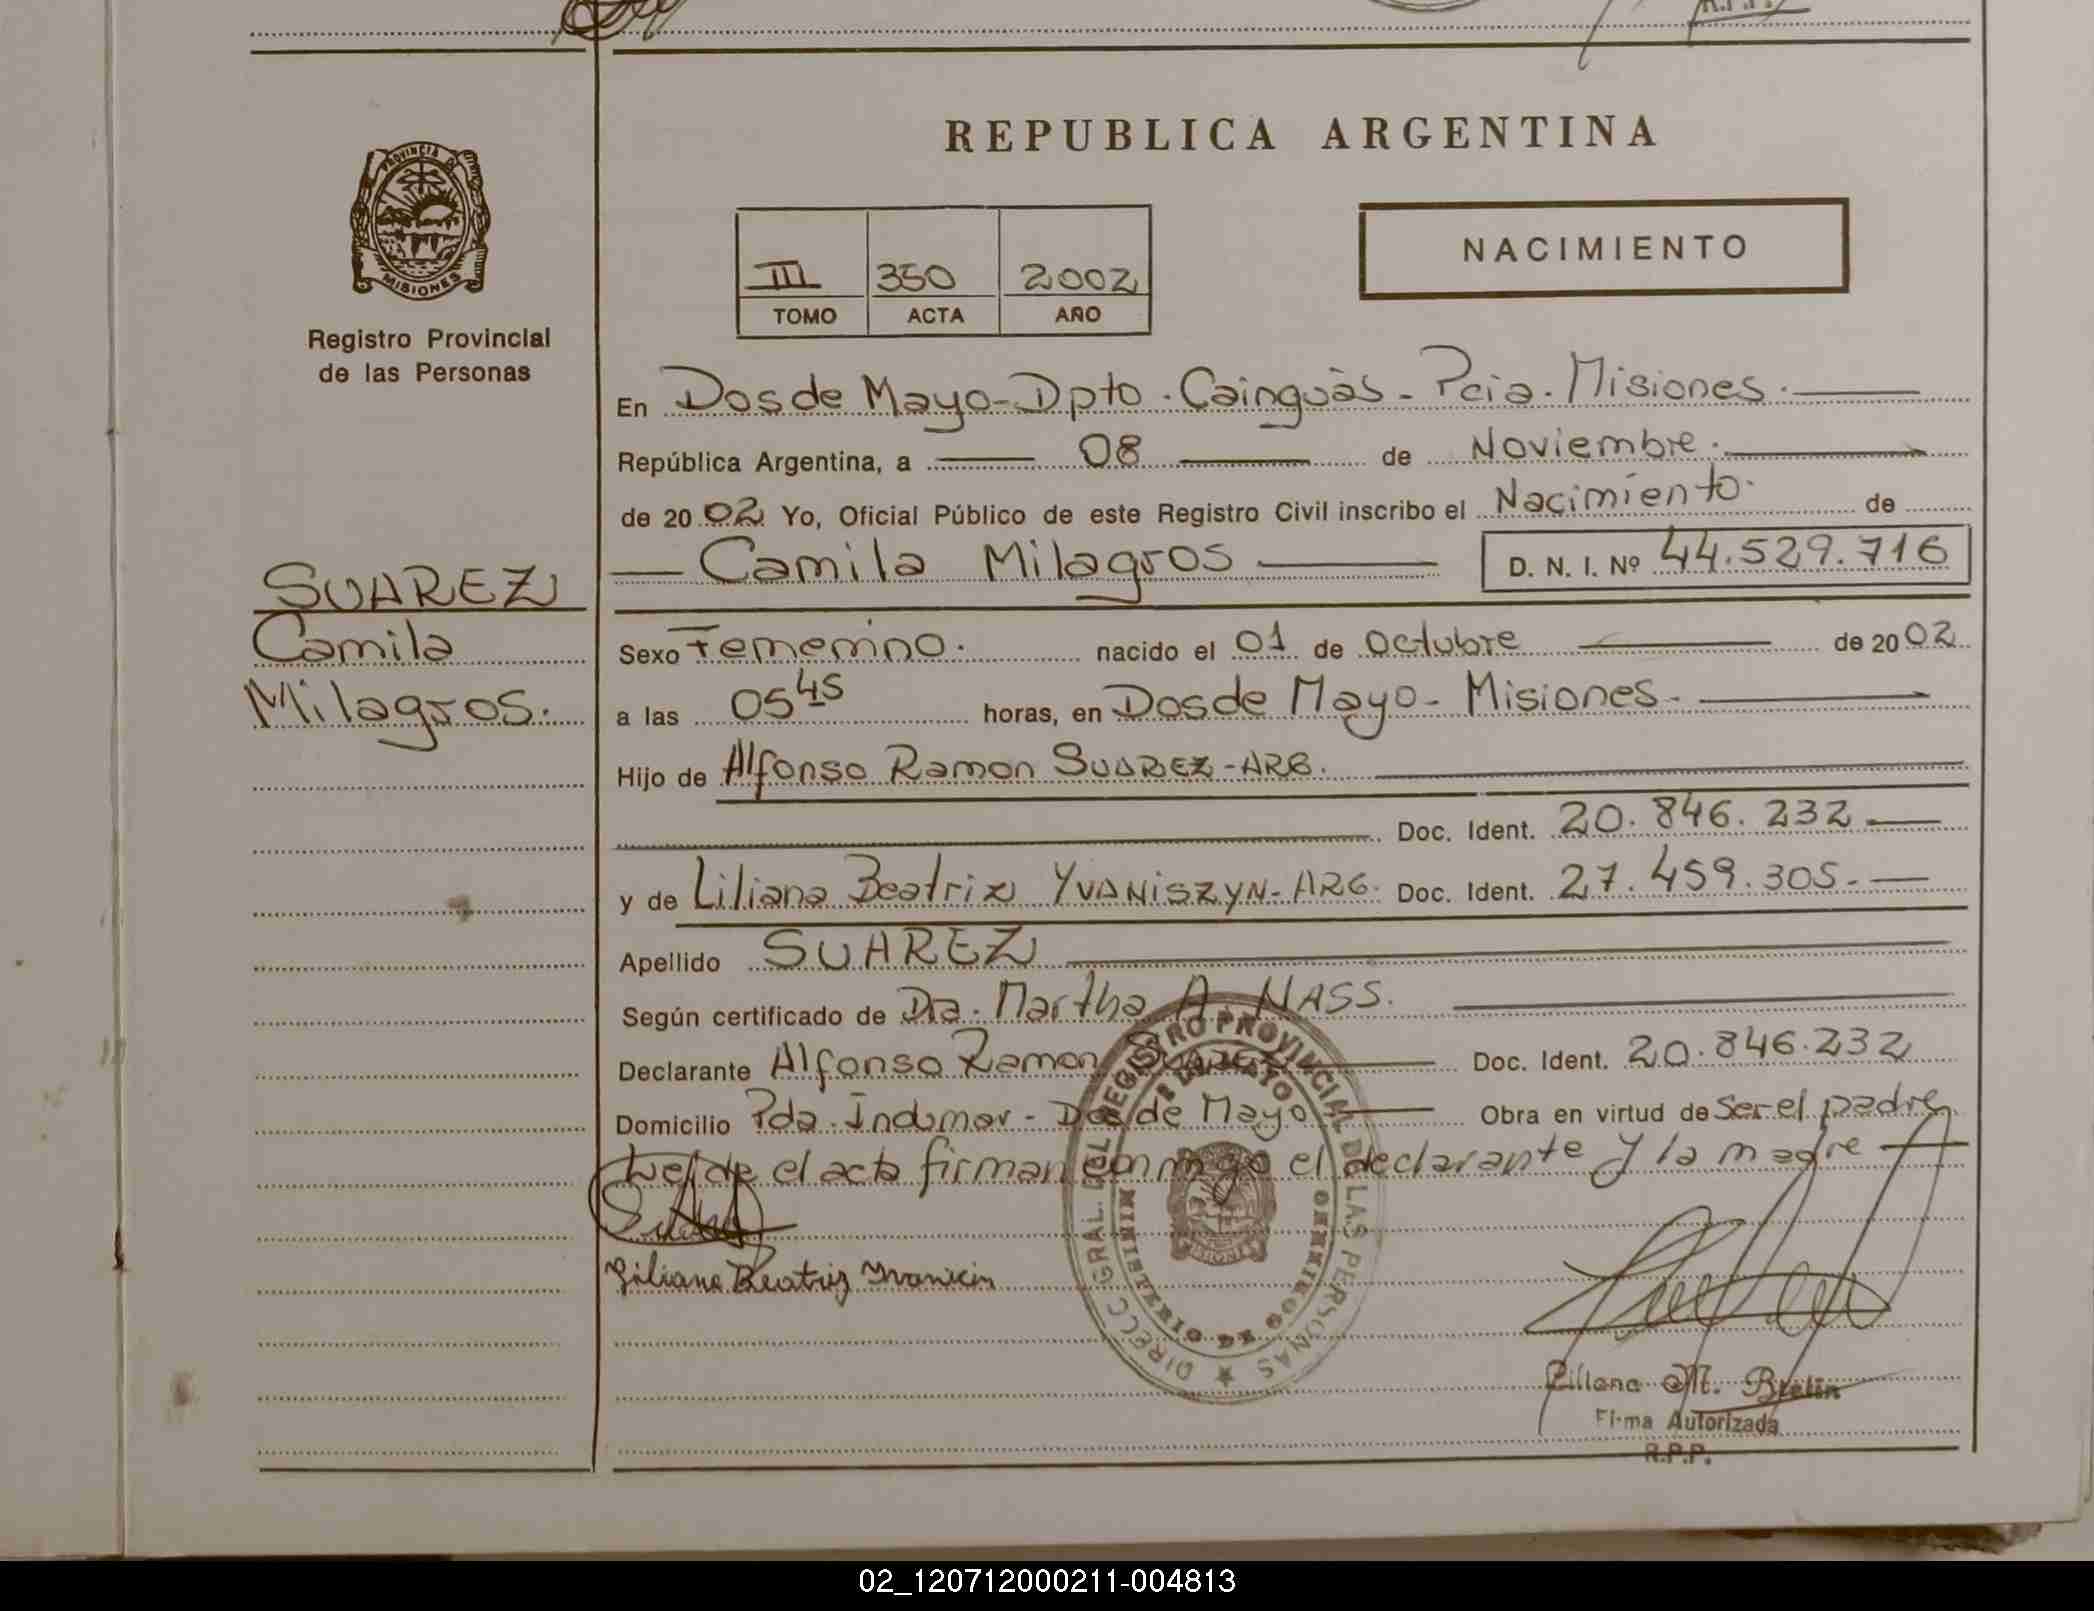 REPUBLICA ARGENTINA
PROVINCIA DE
MISIONES
Registro Provincial
de las Personas
NACIMIENTO
III 350 2002
TOMO ACTA AÑO
En Dos de Mayo - Dpto. Cainguàs - Pcia. Misiones.
República Argentina, a 08 de Noviembre.
de 2002 Yo, Oficial Público de este Registro Civil inscribo el Nacimiento. de
Camila Milagros D. N. I. Nº 44.529.716
SUAREZ
Camila
Milagros.
Sexo Femenino. nacido el 01 de Octubre de 2002
a las 05 45 horas, en Dos de Mayo - Misiones.
Hijo de Alfonso Ramon SUAREZ - ARG.
Doc. Ident. 20.846.232
y de Liliana Beatriz YVANISZYN - ARG. Doc. Ident. 27.459.305.
Apellido SUAREZ
Según certificado de Dra. Martha A. NASS.
Declarante Alfonso Ramon Suarez Doc. Ident. 20.846.232
Domicilio Pda. Indumar - Dos de Mayo Obra en virtud de Ser el padre
Leida el acta firman conmigo el declarante y la madre
Liliana Beatriz Ivanicin
DIRECC. GRAL. DEL REGISTRO PROVINCIAL DE LAS PERSONAS
MINISTERIO DE GOBIERNO
MISIONES
Liliana M. Brelin
Firma Autorizada
R.P.P.
02_120712000211-004813